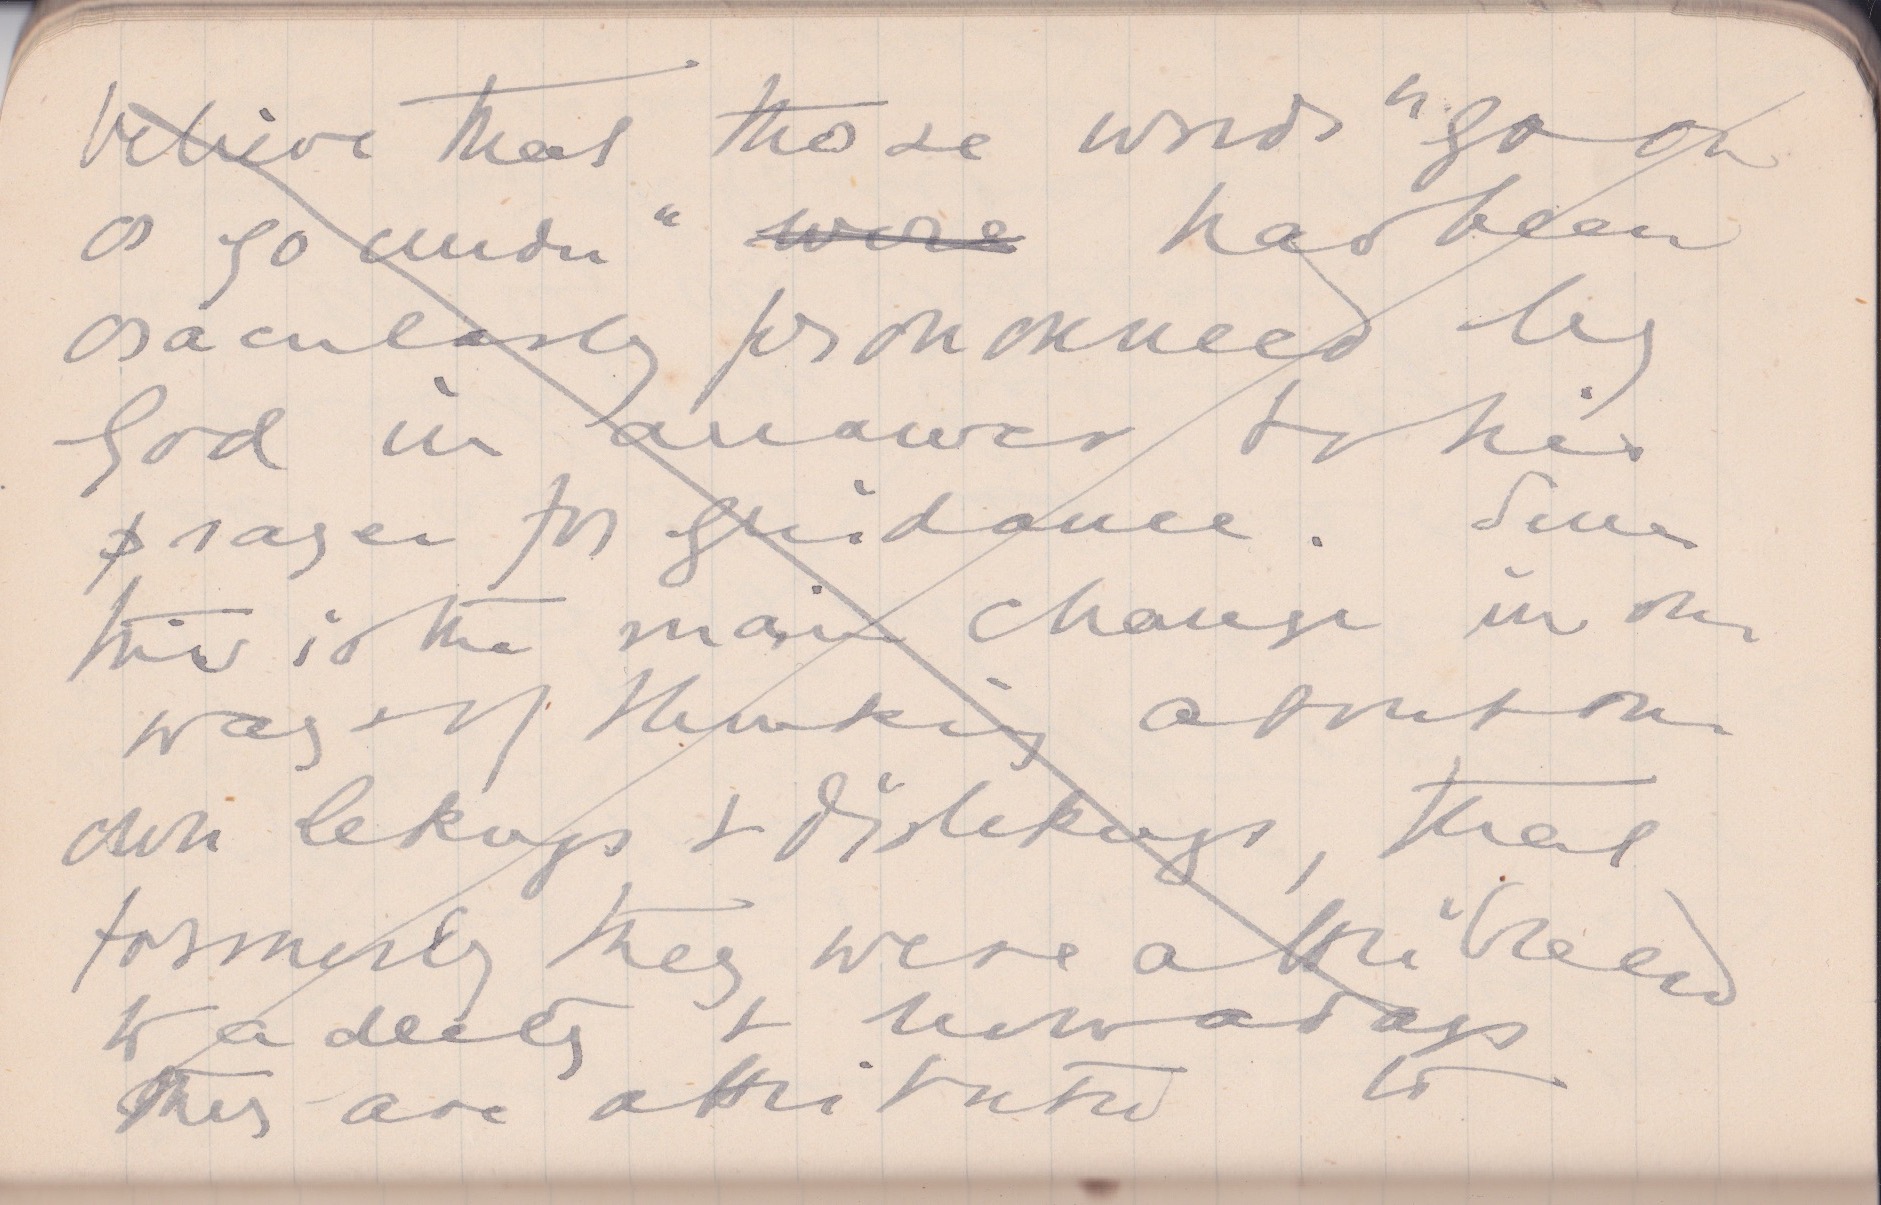 believe that those words "go on
or go under" were had been
oracularly pronounced by
God in answer to his
prayer for guidance. Since
this is the main change in our
ways of thinking about our
own likings & dislikings, that
formerly they were attributed
to a deity & nowadays
they are attributed to